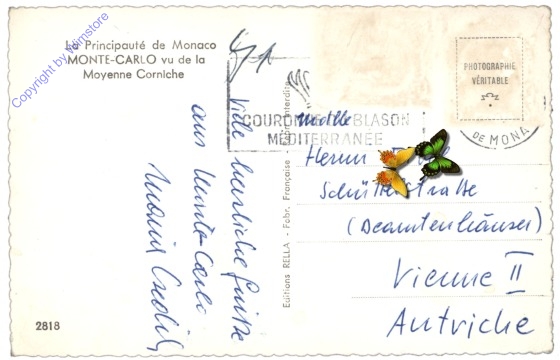 La Principauté de Monaco
MONTE-CARLO vu de la
Moyenne Corniche
Copyright by Wimstore
PHOTOGRAPHIE
VÉRITABLE
COURONNE BLASON
MEDITERRANÉE
DE MONA
Editions RELLA - Fabr. Française - Interdite
Viele herzliche Grüsse
aus Monte Carlo
Herrn
Schüttelstraße
(Beamtenhäuser)
Vienne II
Autriche
2818